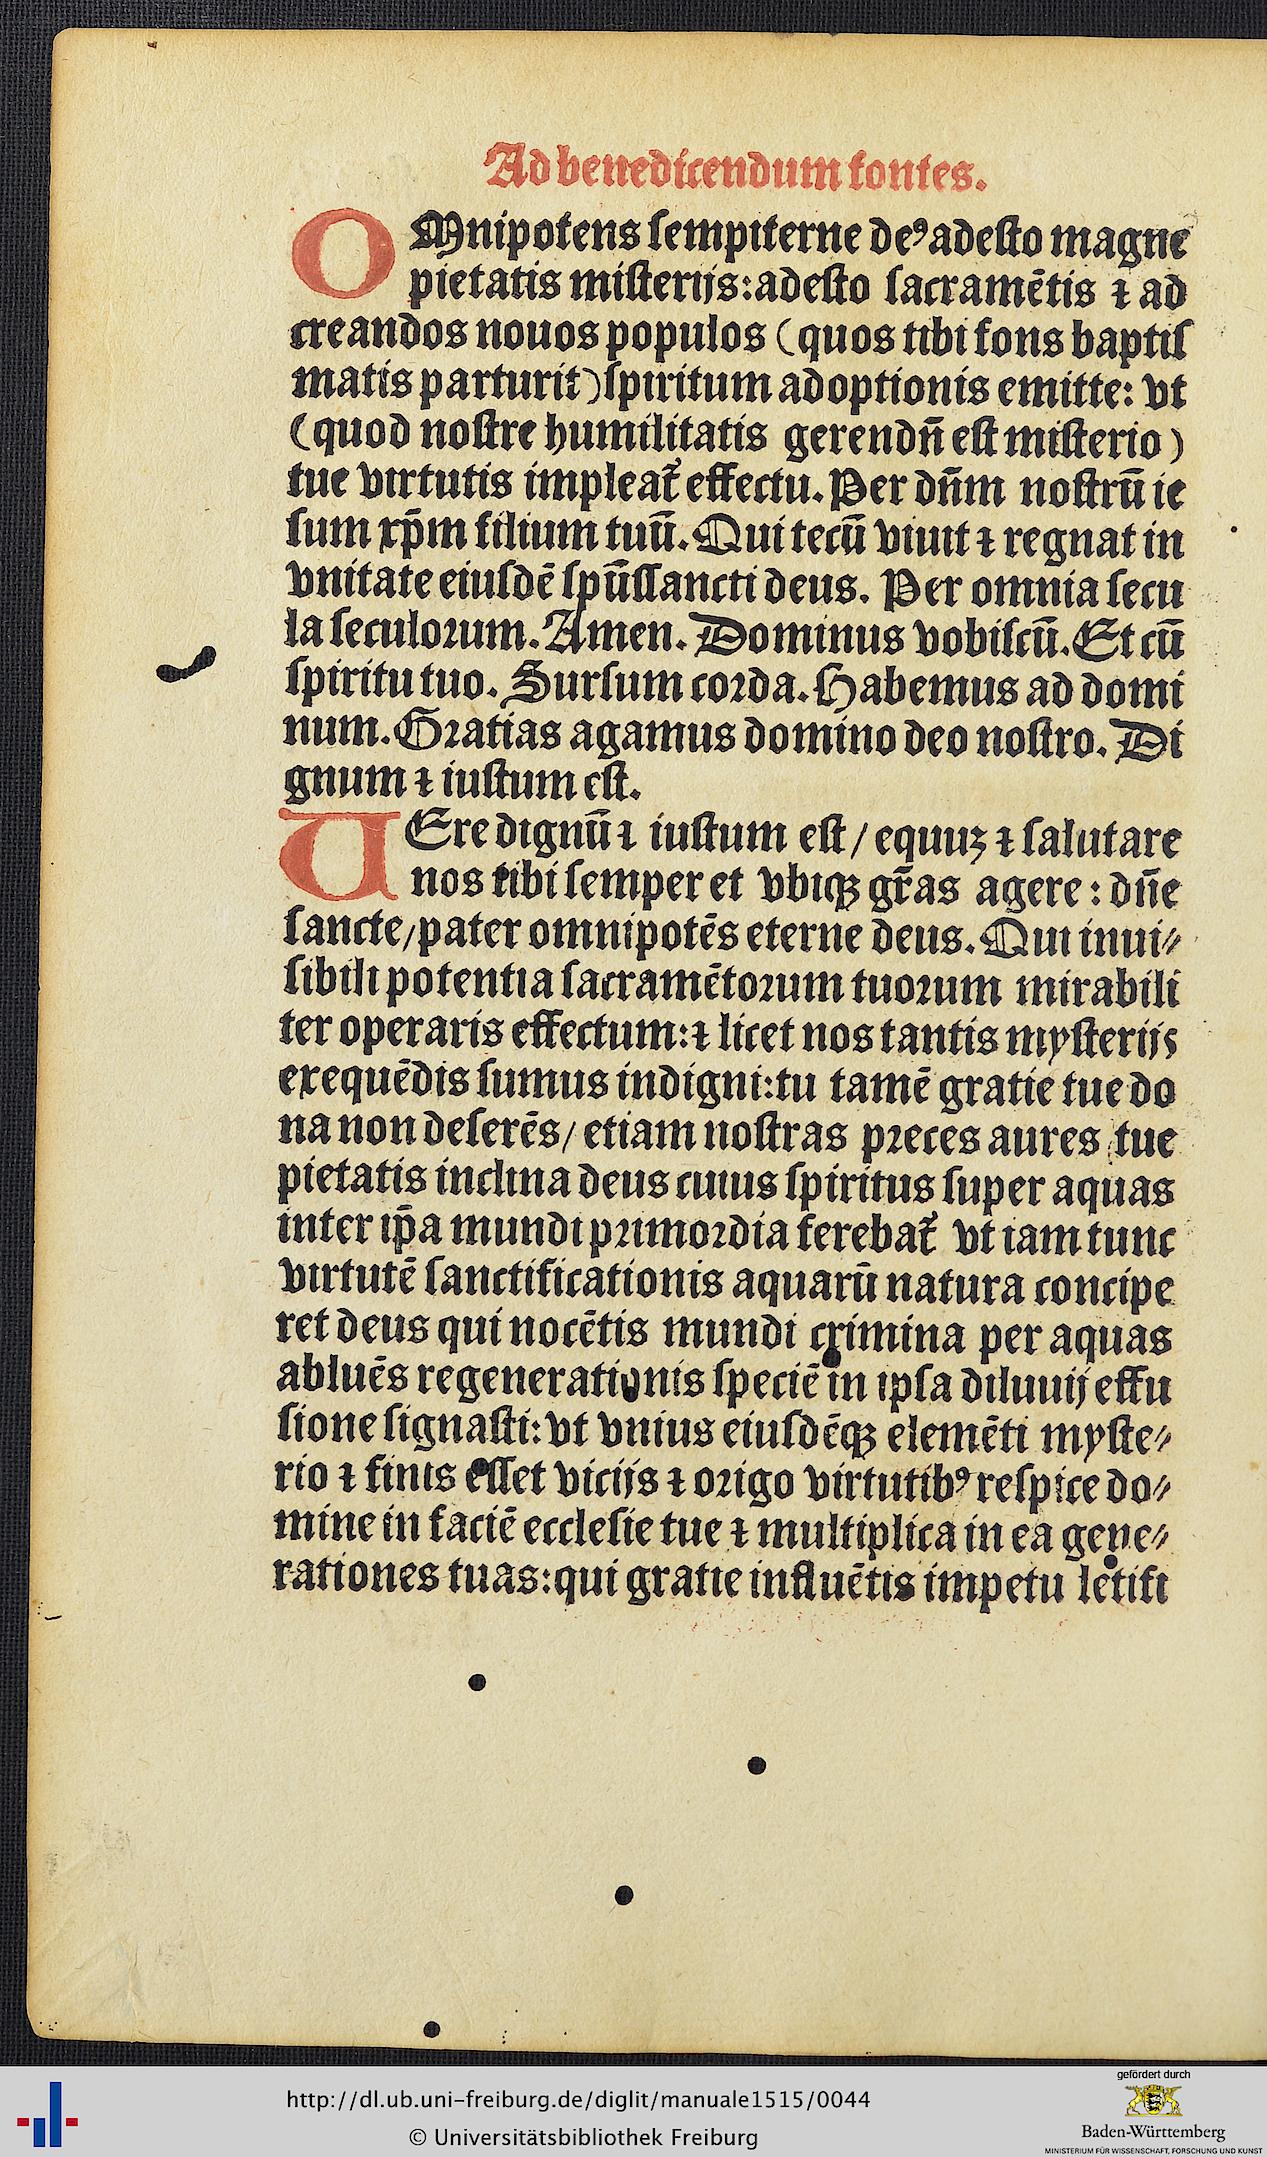 Ad benedicendum fontes.
OMnipotens sempiterne deꝰ adesto magne
pietatis misterijs: adesto sacramētis ⁊ ad
creandos nouos populos (quos tibi fons baptis
matis parturit) spiritum adoptionis emitte: vt
(quod nostre humilitatis gerendn̄ est misterio)
tue virtutis impleat᷑ effectu. Per dn̄m nostrū ie
sum xp̄m filium tuū. Qui tecū viuit ⁊ regnat in
vnitate eiusdē spūssancti deus. Per omnia secu
la seculorum. Amen. Dominus vobiscū. Et cū
spiritu tuo. Sursum corda. Habemus ad domi
num. Gratias agamus domino deo nostro. Di
gnum ⁊ iustum est.
VEre dignū ⁊ iustum est / equuꝫ ⁊ salutare
nos tibi semper et vbiqꝫ gr̄as agere: dn̄e
sancte / pater omnipotēs eterne deus. Qui inui⸗
sibili potentia sacramētorum tuorum mirabili
ter operaris effectum: ⁊ licet nos tantis mysterijs
exequēdis sumus indigni: tu tamē gratie tue do
na non deserēs / etiam nostras preces aures tue
pietatis inclina deus cuius spiritus super aquas
inter ip̄a mundi primordia ferebat᷑ vt iam tunc
virtutē sanctificationis aquarū natura concipe
ret deus qui nocētis mundi crimina per aquas
abluēs regenerationis speciē in ipsa diluuij effu
sione signasti: vt vnius eiusdēqꝫ elemēti myste⸗
rio ⁊ finis esset vicijs ⁊ origo virtutibꝰ respice do⸗
mine in faciē ecclesie tue ⁊ multiplica in ea gene⸗
rationes tuas: qui gratie influētis impetu letifi
http://dl.ub.uni-freiburg.de/diglit/manuale1515/0044
© Universitätsbibliothek Freiburg
gefördert durch
Baden-Württemberg
MINISTERIUM FÜR WISSENSCHAFT, FORSCHUNG UND KUNST